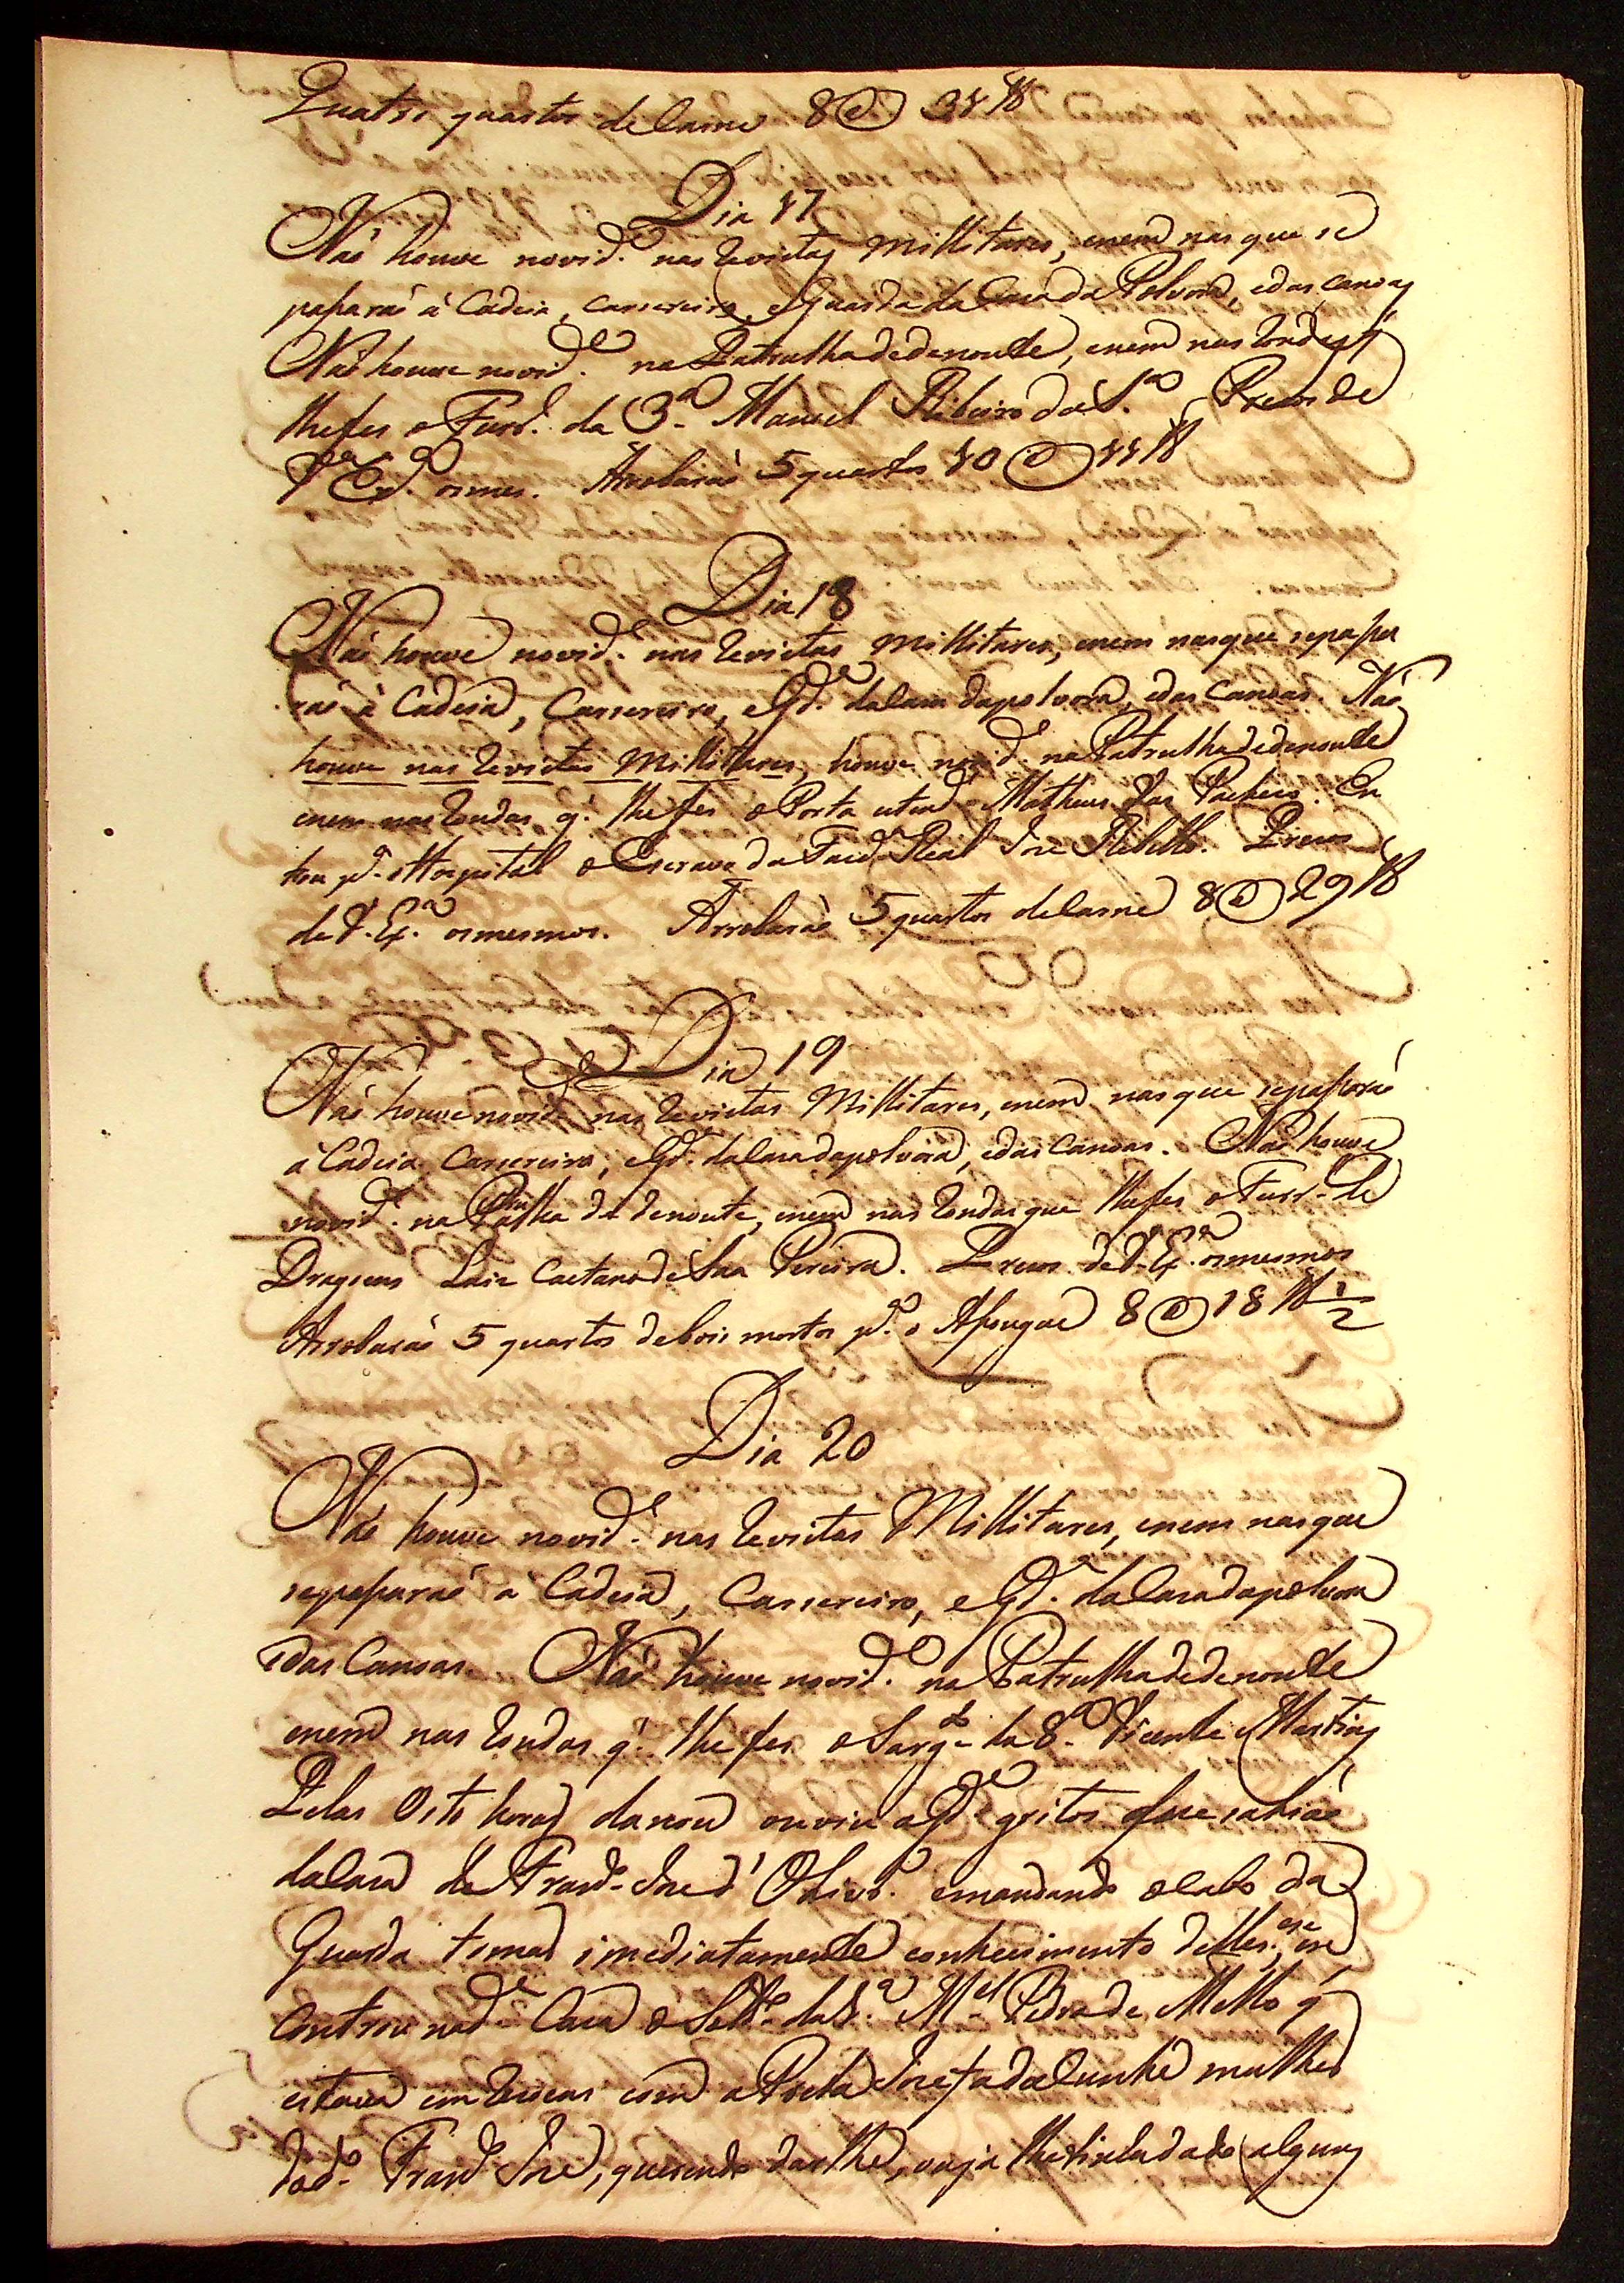 Quatro quartos de Carne 8@ 31 lb
Dia 17
Não houve novid.e nas Revistas Millitares, enem nas que se
passarão á Cadeia, Carsereiro, e Guarda da Caza da Polvora, e das Canoas
Não houve novid.e na Patrulha de denoute, enem nas Rondas q'
lhe fes o Furr.l da 3.a Manoel Ribeiro da S.a Prezos de
V. Ex.a os mes. Arrobarão 5 quartos 10@ 11 lb
Dia 18
Não houve novid.e nas Revistas Millitares, enem nas que se passa
rão á Cadeia, Carsereiro, e G.da da Caza da polvora, e das Canoas. Não
houve nas Revistas Millitares, houve novid.e na Patrulha de denoute
enem nas Rondas q' lhe fes o Porta Matheus Pacheco. En
trou p.a o Hospital o Escravo da Faz.da Real Joze Rebello. Prezos
de V. Ex.a os mesmos. Arrobarão 5 quartos de Carne 8@ 29 lb
Dia 19
Não houve novid.e nas Revistas Millitares, enem nas que se passarão
á Cadeia Carsereiro, e G.da da Caza da polvora, e das Canoas. Não houve
novid.e na Patrulha de denoute, enem nas Rondas que lhe fes o Furr.l de
Dragoens Luiz Caetano de Sza Pereira. Prezos de V. Ex.a os mesmos
Arrobarão 5 quartos de bois mortos p.a o Asougue 8@ 18 lb 1/2
Dia 20
Não houve novid.e nas Revistas Millitares, enem nas que
se passarão a Cadeia, Carsereiro, e G.da da Caza da polvora
e das Canoas. Não houve novid.e na Patrulha de denoute
enem nas Rondas q' lhe fes o Sarg.to da 8.a Vicente Martins
Pelas Oito horas da nou ouviu a G.da gritos que sahião
da Caza de Fran.co Joze d' Oliv.ra e mandando o Cabo da
Guarda tomar imediatamente conhecimento delles, ese en
controu na d.a Caza o Sold.o da 1.a M.el Pedro de Mello q'
estava em com a Preta Jozefa da Cunha mulher
do d.o Fran.co Joze, querendo dar lhe, ou já lhe tinha dado alguns